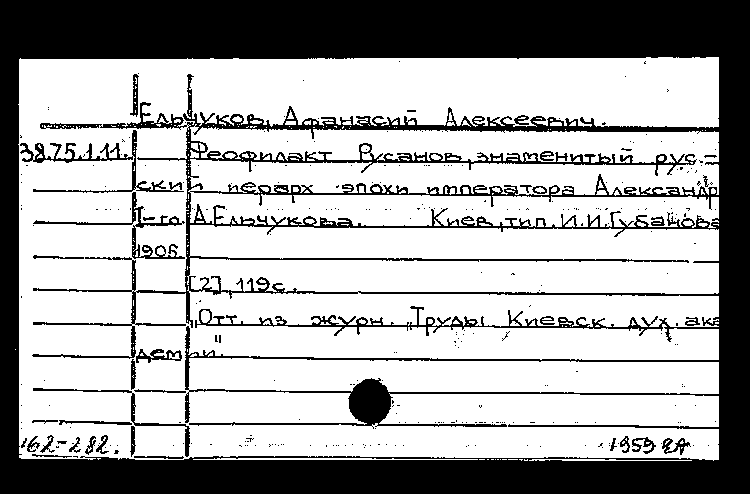 Ельчуков, Афанасий Алексеевич.
38.75.1.11. Феофилакт Русанов, знаменитый рус-
ский иерарх эпохи императора Александр
I-го. А.Ельчукова. Киев, тип. И.И.Губанова
1906
[2], 119 с.
„Отт. из журн. „Труды Киевск. дух. ака
демии."
162-282. 1959